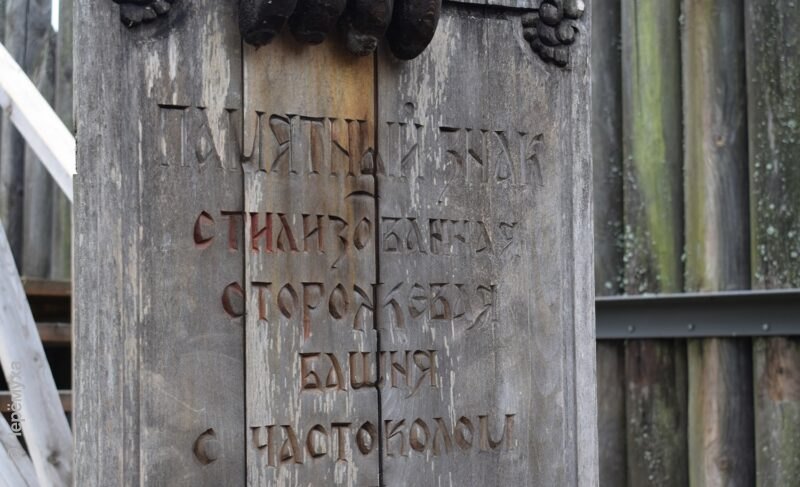 ПАМЯТНЫЙ ЗНАК
СТИЛИЗОВАННАЯ
СТОРОЖЕВАЯ
БАШНЯ
С ЧАСТОКОЛОМ
черёмуха